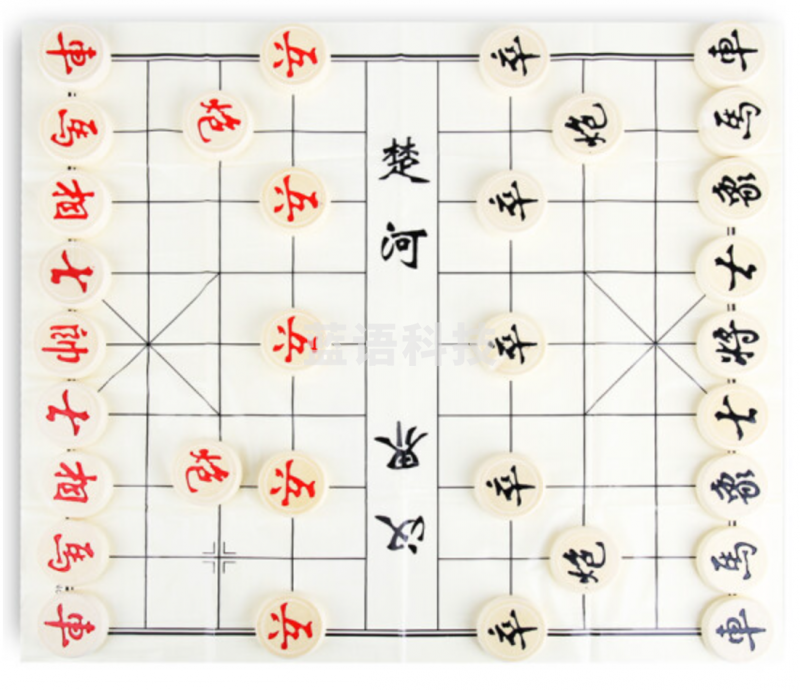 車馬相士帥士相馬車
炮炮
兵兵兵兵兵
楚河
汉界
卒卒卒卒卒
炮炮
車馬象士将士象馬車
蓝语科技